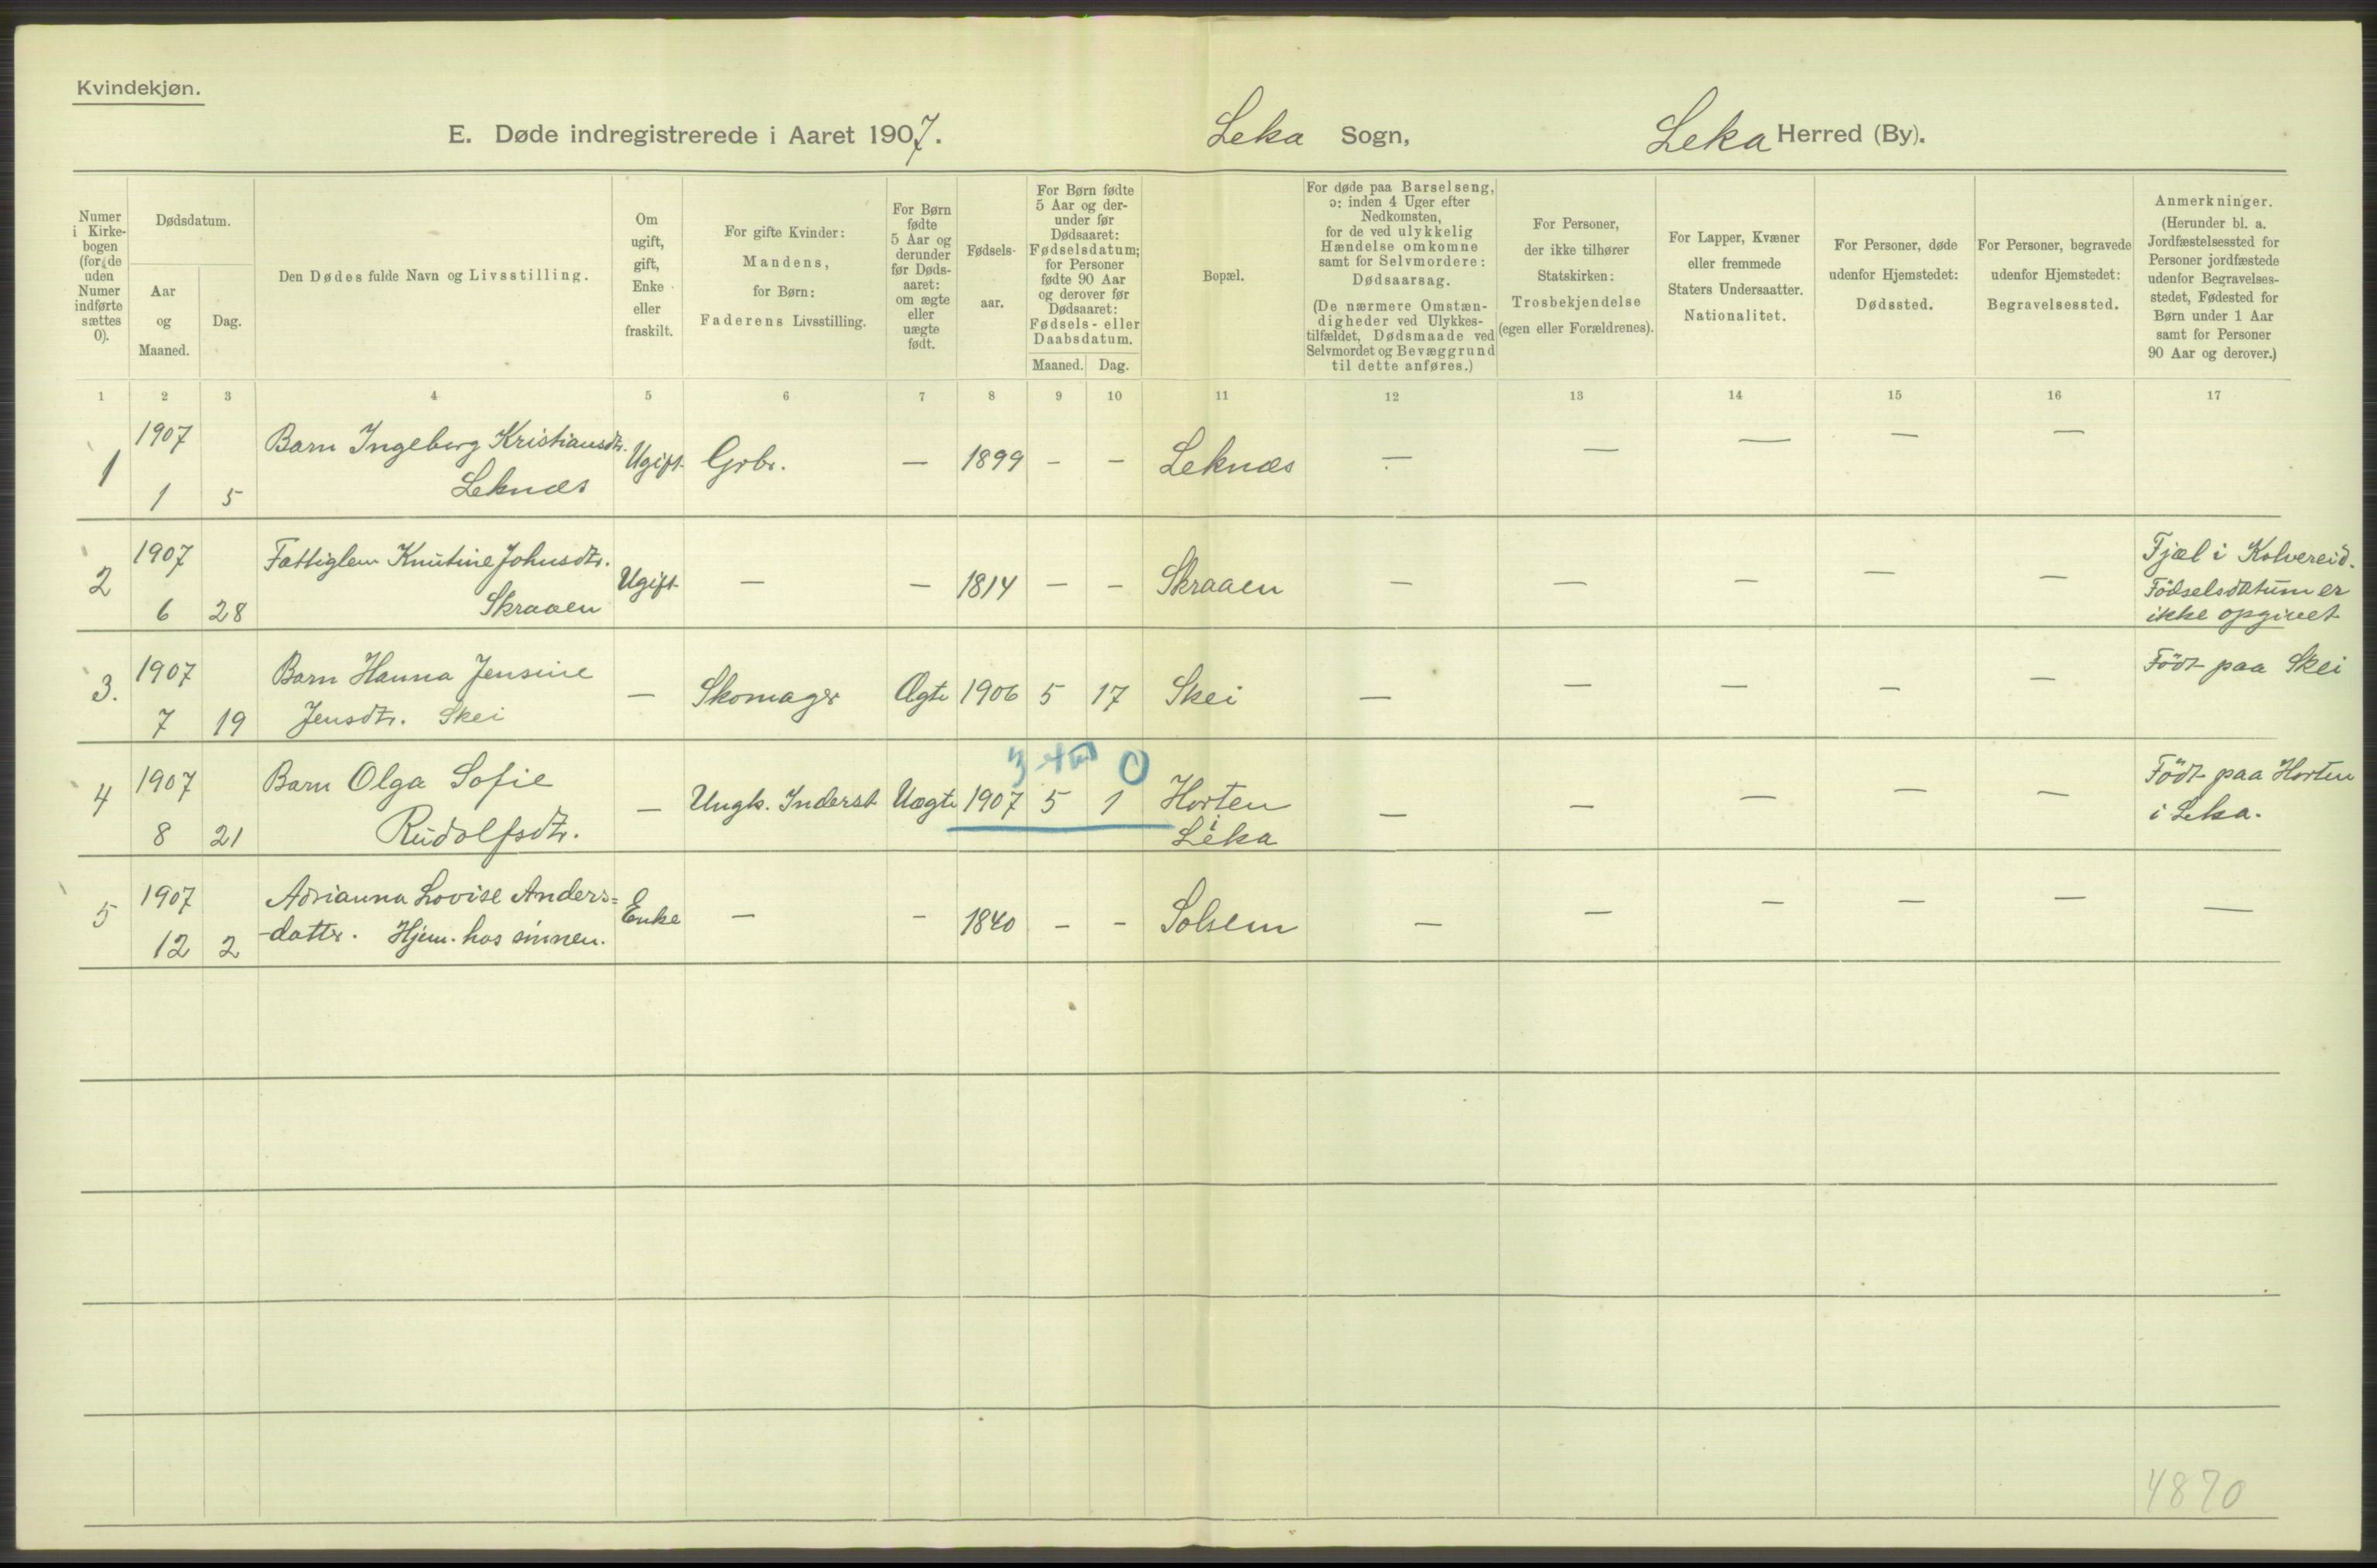 Kvindekjøn.
E. Døde indregistrerede i Aaret 1907. Leka Sogn, Leka Herred (By).
Numer i Kirke-bogen (for de uden Numer indførte sættes 0).
Dødsdatum.
Aar og Maaned.
Dag.
Den Dødes fulde Navn og Livsstilling.
Om ugift, gift, Enke eller fraskilt.
For gifte Kvinder: Mandens, for Børn: Faderens Livsstilling.
For Børn fødte 5 Aar og derunder før Døds-aaret: om ægte eller uægte født.
Fødsels-aar.
For Børn fødte 5 Aar og der-under før Dødsaaret: Fødselsdatum; for Personer fødte 90 Aar og derover før Dødsaaret: Fødsels- eller Daabsdatum.
Maaned. Dag.
Bopæl.
For døde paa Barselseng, ɔ: inden 4 Uger efter Nedkomsten, for de ved ulykkelig Hændelse omkomne samt for Selvmordere: Dødsaarsag.
(De nærmere Omstæn-digheder ved Ulykkes-tilfældet, Dødsmaade ved Selvmordet og Bevæggrund til dette anføres.)
For Personer, der ikke tilhører Statskirken: Trosbekjendelse (egen eller Forældrenes).
For Lapper, Kvæner eller fremmede Staters Undersaatter. Nationalitet.
For Personer, døde udenfor Hjemstedet: Dødssted.
For Personer, begravede udenfor Hjemstedet: Begravelsessted.
Anmerkninger.
(Herunder bl. a. Jordfæstelsessted for Personer jordfæstede udenfor Begravelses-stedet, Fødested for Børn under 1 Aar samt for Personer 90 Aar og derover.)
1 2 3 4 5 6 7 8 9 10 11 12 13 14 15 16 17
1 1907 Barn Ingeborg Kristiansdtr. Ugift Grbr. — 1899 — — Leknæs — — — — —
1 5 Leknæs
2 1907 Fattiglem Knutine Johnsdtr. Ugift — — 1814 — — Skraaen — — — — — Fjæl i Kolvereid.
6 28 Skraaen Fødselsdatum er
ikke opgivet
3. 1907 Barn Hanna Jensine — Skomager Ægte 1906 5 17 Skei — — — — — Født paa Skei
7 19 Jensdtr. Skei
0
4 1907 Barn Olga Sofie — Ungk. Inderst Uægte 1907 5 1 Horten — — — — — Født paa Horten
8 21 Rudolfsdtr. i Leka i Leka.
5 1907 Adrianna Lovise Anders= Enke — — 1840 — — Solsem — — — — — —
12 2 -datter. Hjem. hos sønnen.
4870